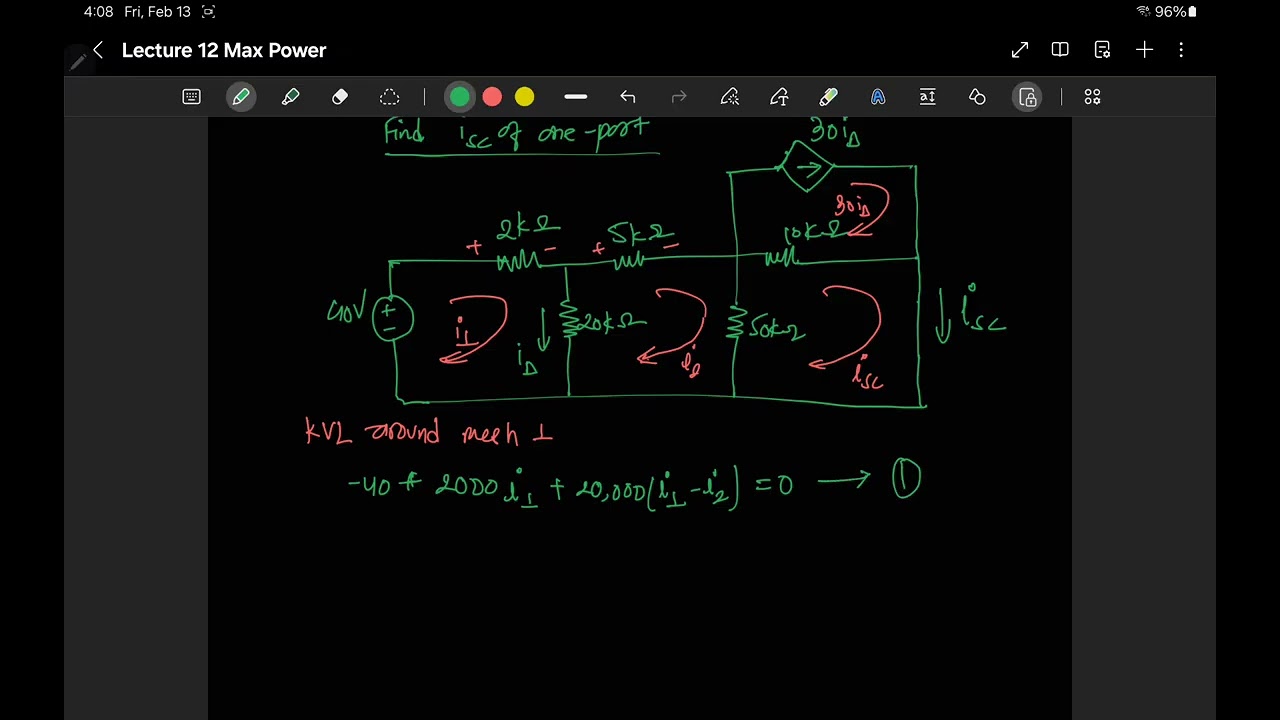 4:08 Fri, Feb 13
96%
Lecture 12 Max Power
Find isc of one-port
30iΔ
30iΔ
2kΩ
5kΩ
10kΩ
+ - + -
40V
+
-
i1
iΔ
20kΩ
i2
50kΩ
isc
isc
KVL around mesh 1
-40 + 2000 i1 + 20,000(i1 - i2) = 0 → ①